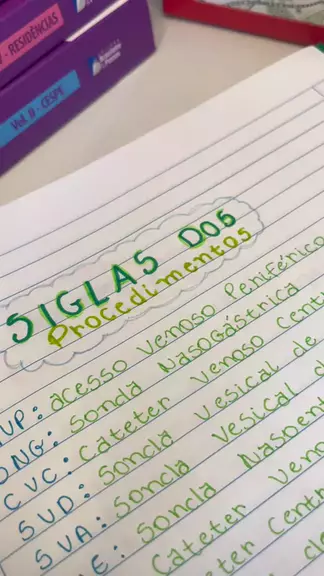 V - RESIDÊNCIAS
Vol. II - CESPE
SIGLAS DOS
Procedimentos
VP: acesso venoso Periférico
SNG: Sonda Nasogástrica
CVC: Cateter Venoso Cent
SVD: Sonda Vesical de
SVA: Sonda Vesical d
E: Sonda Nasoen
Cateter Veno
ter Centr